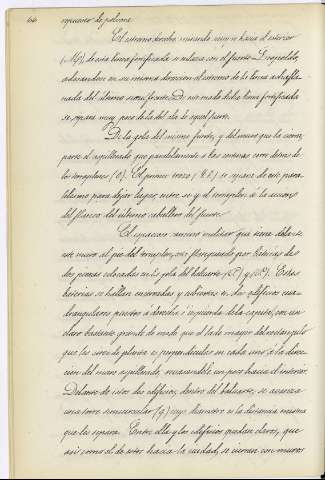 66
espesor de
El extremo derecho, mirando siempre hacia el interior
de esta linea fortificada se enlaza con el fuerte Leopoldo,
adosandose en su misma direccion al extremo de la linea achafla
nada del ultimo semifrente. De este modo dicha linea fortificada
se separa muy poco de la del de igual fuerte.
De la gola del mismo fuerte, y del muro que la cierra,
parte el aspillerado que paralelamente a las cortinas corre detras de
los terraplenes (O). El primer trozo se separa de este para
lelismo para dejar lugar, entre si y el terraplen de la accion
del flanco del ultimo caballero del fuerte.
El espacio mismo militar que tiene delante
este muro al pie del terraplen, esta flanqueado por baterias de
dos piezas colocadas en la gola del baluarte (P) y (P). Estas
baterias se hallan encerradas y cubiertas en dos edificios cua
drangulares puestos a derecha e izquierda de la capital, con un
claro bastante grande de modo que el lado mayor del rectangulo
que les sirve de planta es perpendicular en cada uno a la direc
cion del muro aspillerado, avanzando un poco hacia el interior.
Delante de estos dos edificios, dentro del baluarte, se avanza
una torre semicircular (q) cuyo diametro es la distancia misma
que les separa. Entre ella y los edificios quedan claros, que
asi como el de estos hacia la ciudad, se cierran con muros